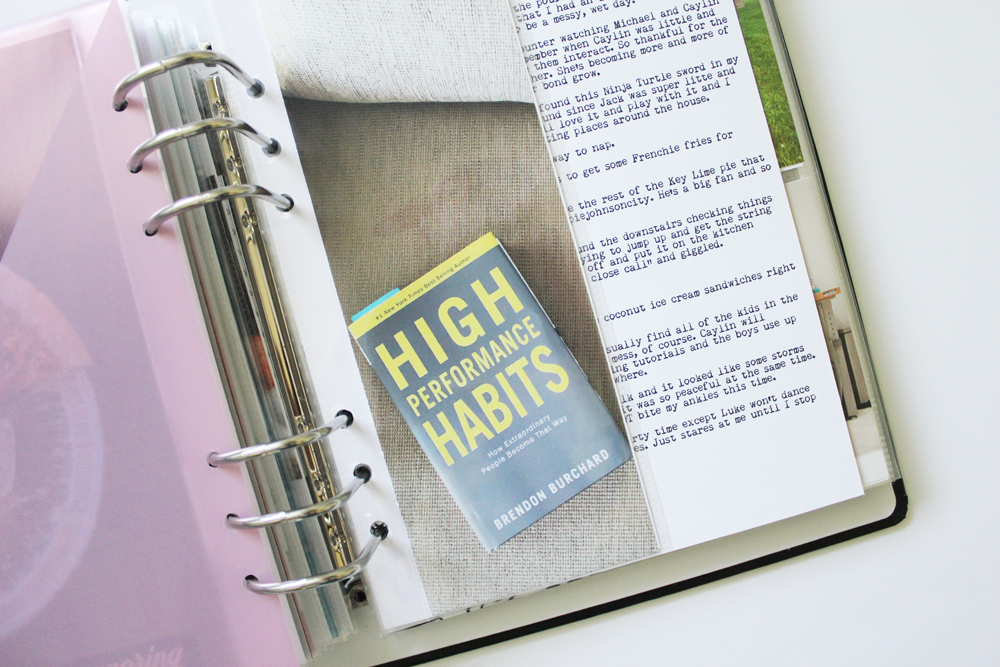 #1 New York Times Best Selling Author
HIGH
PERFORMANCE
HABITS
How Extraordinary
People Become That Way
BRENDON BURCHARD
that I had an
be a messy, wet day.
unter watching Michael and Caylin
ember when Caylin was little and
them interact. So thankful for the
her. She's becoming more and more of
bond grow.
found this Ninja Turtle sword in my
und since Jack was super litte and
ll love it and play with it and I
ing places around the house.
way to nap.
to get some Frenchie fries for
e the rest of the Key Lime pie that
piejohnsoncity. He's a big fan and so
and the downstairs checking things
ying to jump up and get the string
off and put it on the kitchen
close call" and giggled.
coconut ice cream sandwiches right
sually find all of the kids in the
mess, of course. Caylin will
ing tutorials and the boys use up
where.
lk and it looked like some storms
t was so peaceful at the same time.
T bite my ankles this time.
rty time except Luke won't dance
es. Just stares at me until I stop